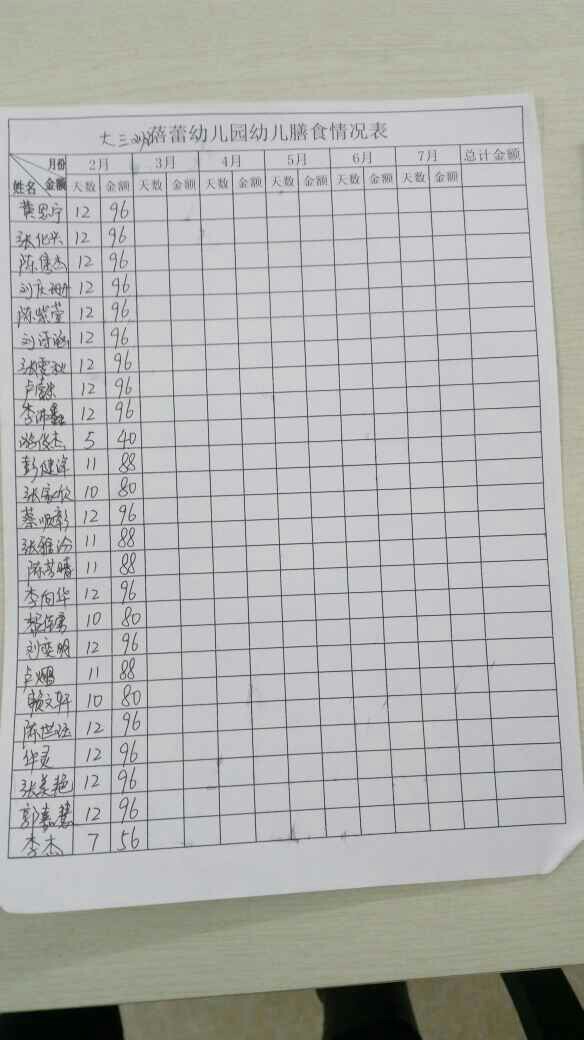 大三班蓓蕾幼儿园幼儿膳食情况表
月份 2月 3月 4月 5月 6月 7月 总计金额
姓名 金额 天数 金额 天数 金额 天数 金额 天数 金额 天数 金额 天数 金额
黄思宁 12 96
张化兴 12 96
陈俊杰 12 96
刘庆珊 12 96
陈紫萱 12 96
刘诗涵 12 96
张雯秋 12 96
卢 12 96
李沛鑫 12 96
俊杰 5 40
彭健泽 11 88
张家欣 10 80
蔡顺彰 12 96
张雅汐 11 88
陈芳晴 11 88
李向华 12 96
伟勇 10 80
刘奕明 12 96
卢烟 11 88
赖文轩 10 80
陈世 12 96
华灵 12 96
张美艳 12 96
郭嘉慧 12 96
李杰 7 56